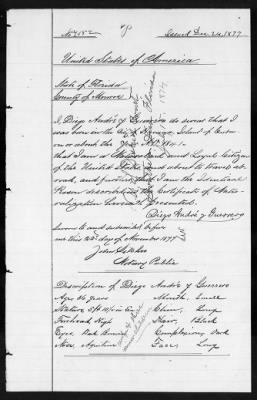 Issued Dec 24, 1877
United States of America
State of Florida
County of Monroe
I, Diego Andre y Guerrero do swear that I
was born in the City of Havana, Island of Cuba
on or about the
that I am a Naturalized and Loyal Citizen
of the United States, and about to travel abroad,
and further that I am the identical
Person described in the Certificate of Natu-
ralization herewith presented.
Diego Andre y Guerrero
Sworn to and subscribed before
me this 22d day of November 1877
John
Notary Public
Description of Diego Andre y Guerrero
Age 36 years
Mouth, Small
Stature 5 ft
Chin, Long
Forehead, High
Hair, Black
Eyes Dark Brown
Complexion, Dark
Nose, Aquiline
Face, Long